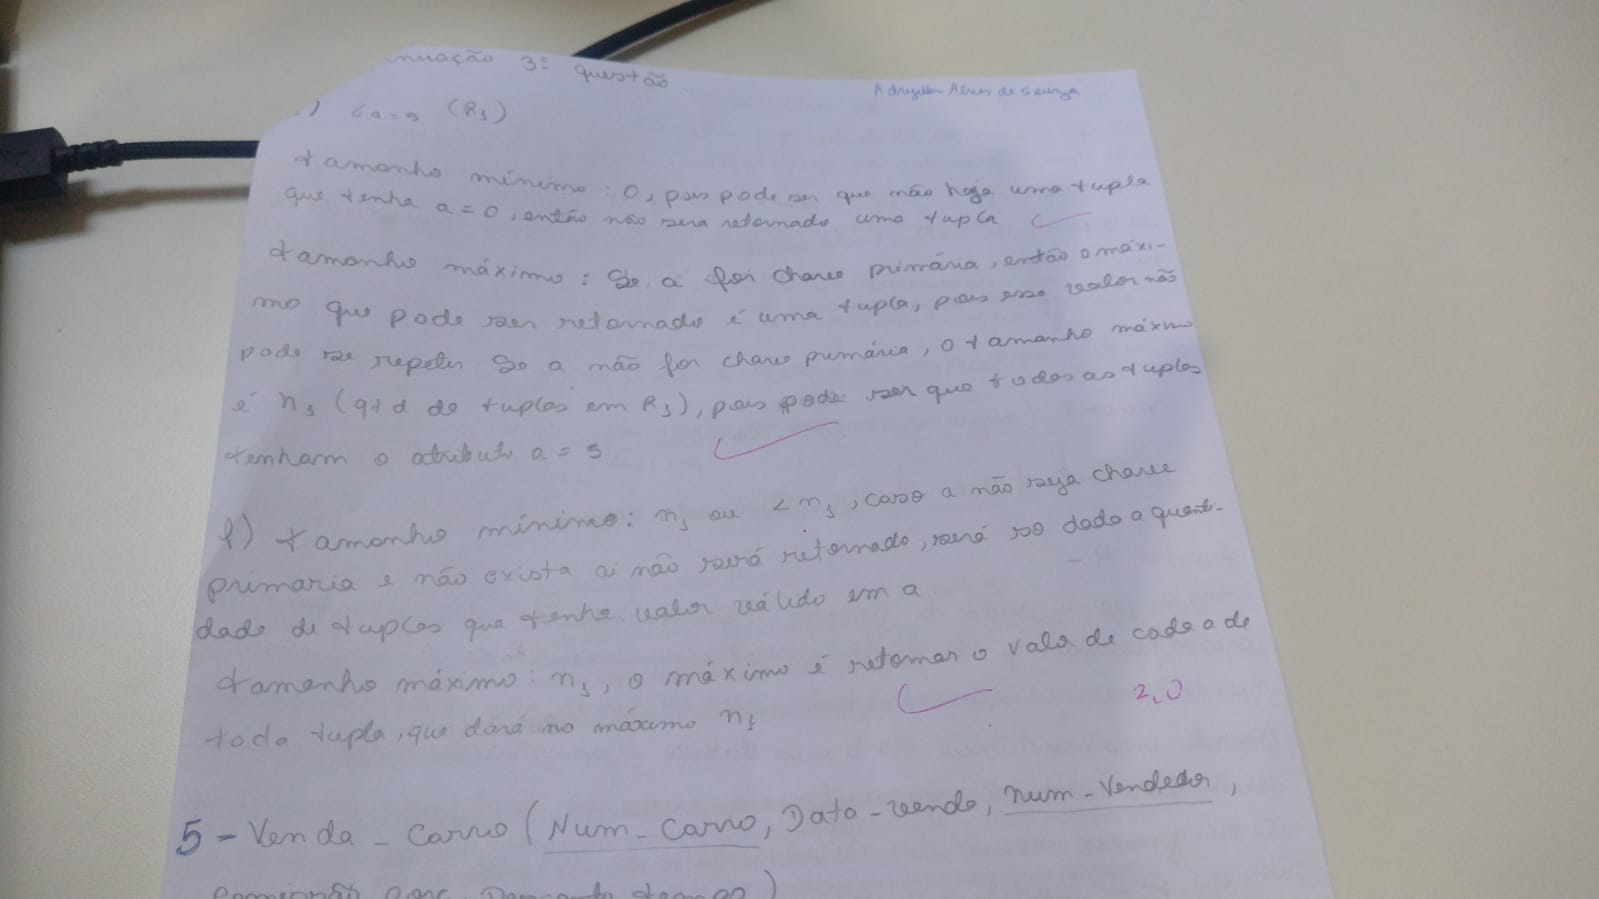 nuação 3ª questão
Alves de Souza
) σa=5 (R1)
tamanho mínimo: 0, pois pode ser que não haja uma tupla
que tenha a=0, então não sera retornado uma tupla
tamanho máximo: Se a for chave primária, então o máxi-
mo que pode ser retornado é uma tupla, pois esse valor não
pode se repetir. Se a não for chave primária, o tamanho máximo
é n1 (qtd de tuplas em R1), pois pode ser que todas as tuplas
tenham o atributo a = 5
f) tamanho mínimo: n1 ou < n1, caso a não seja chave
primaria e não exista a não será retornado, será so dado a quanti-
dade de tuplas que tenha valor válido em a
tamanho máximo: n1, o máximo é retornar o valor de cada a de
toda tupla, que dará no máximo n1
2,0
5 - Venda - Carro (Num - Carro, Data - venda, Num - Vendedor,